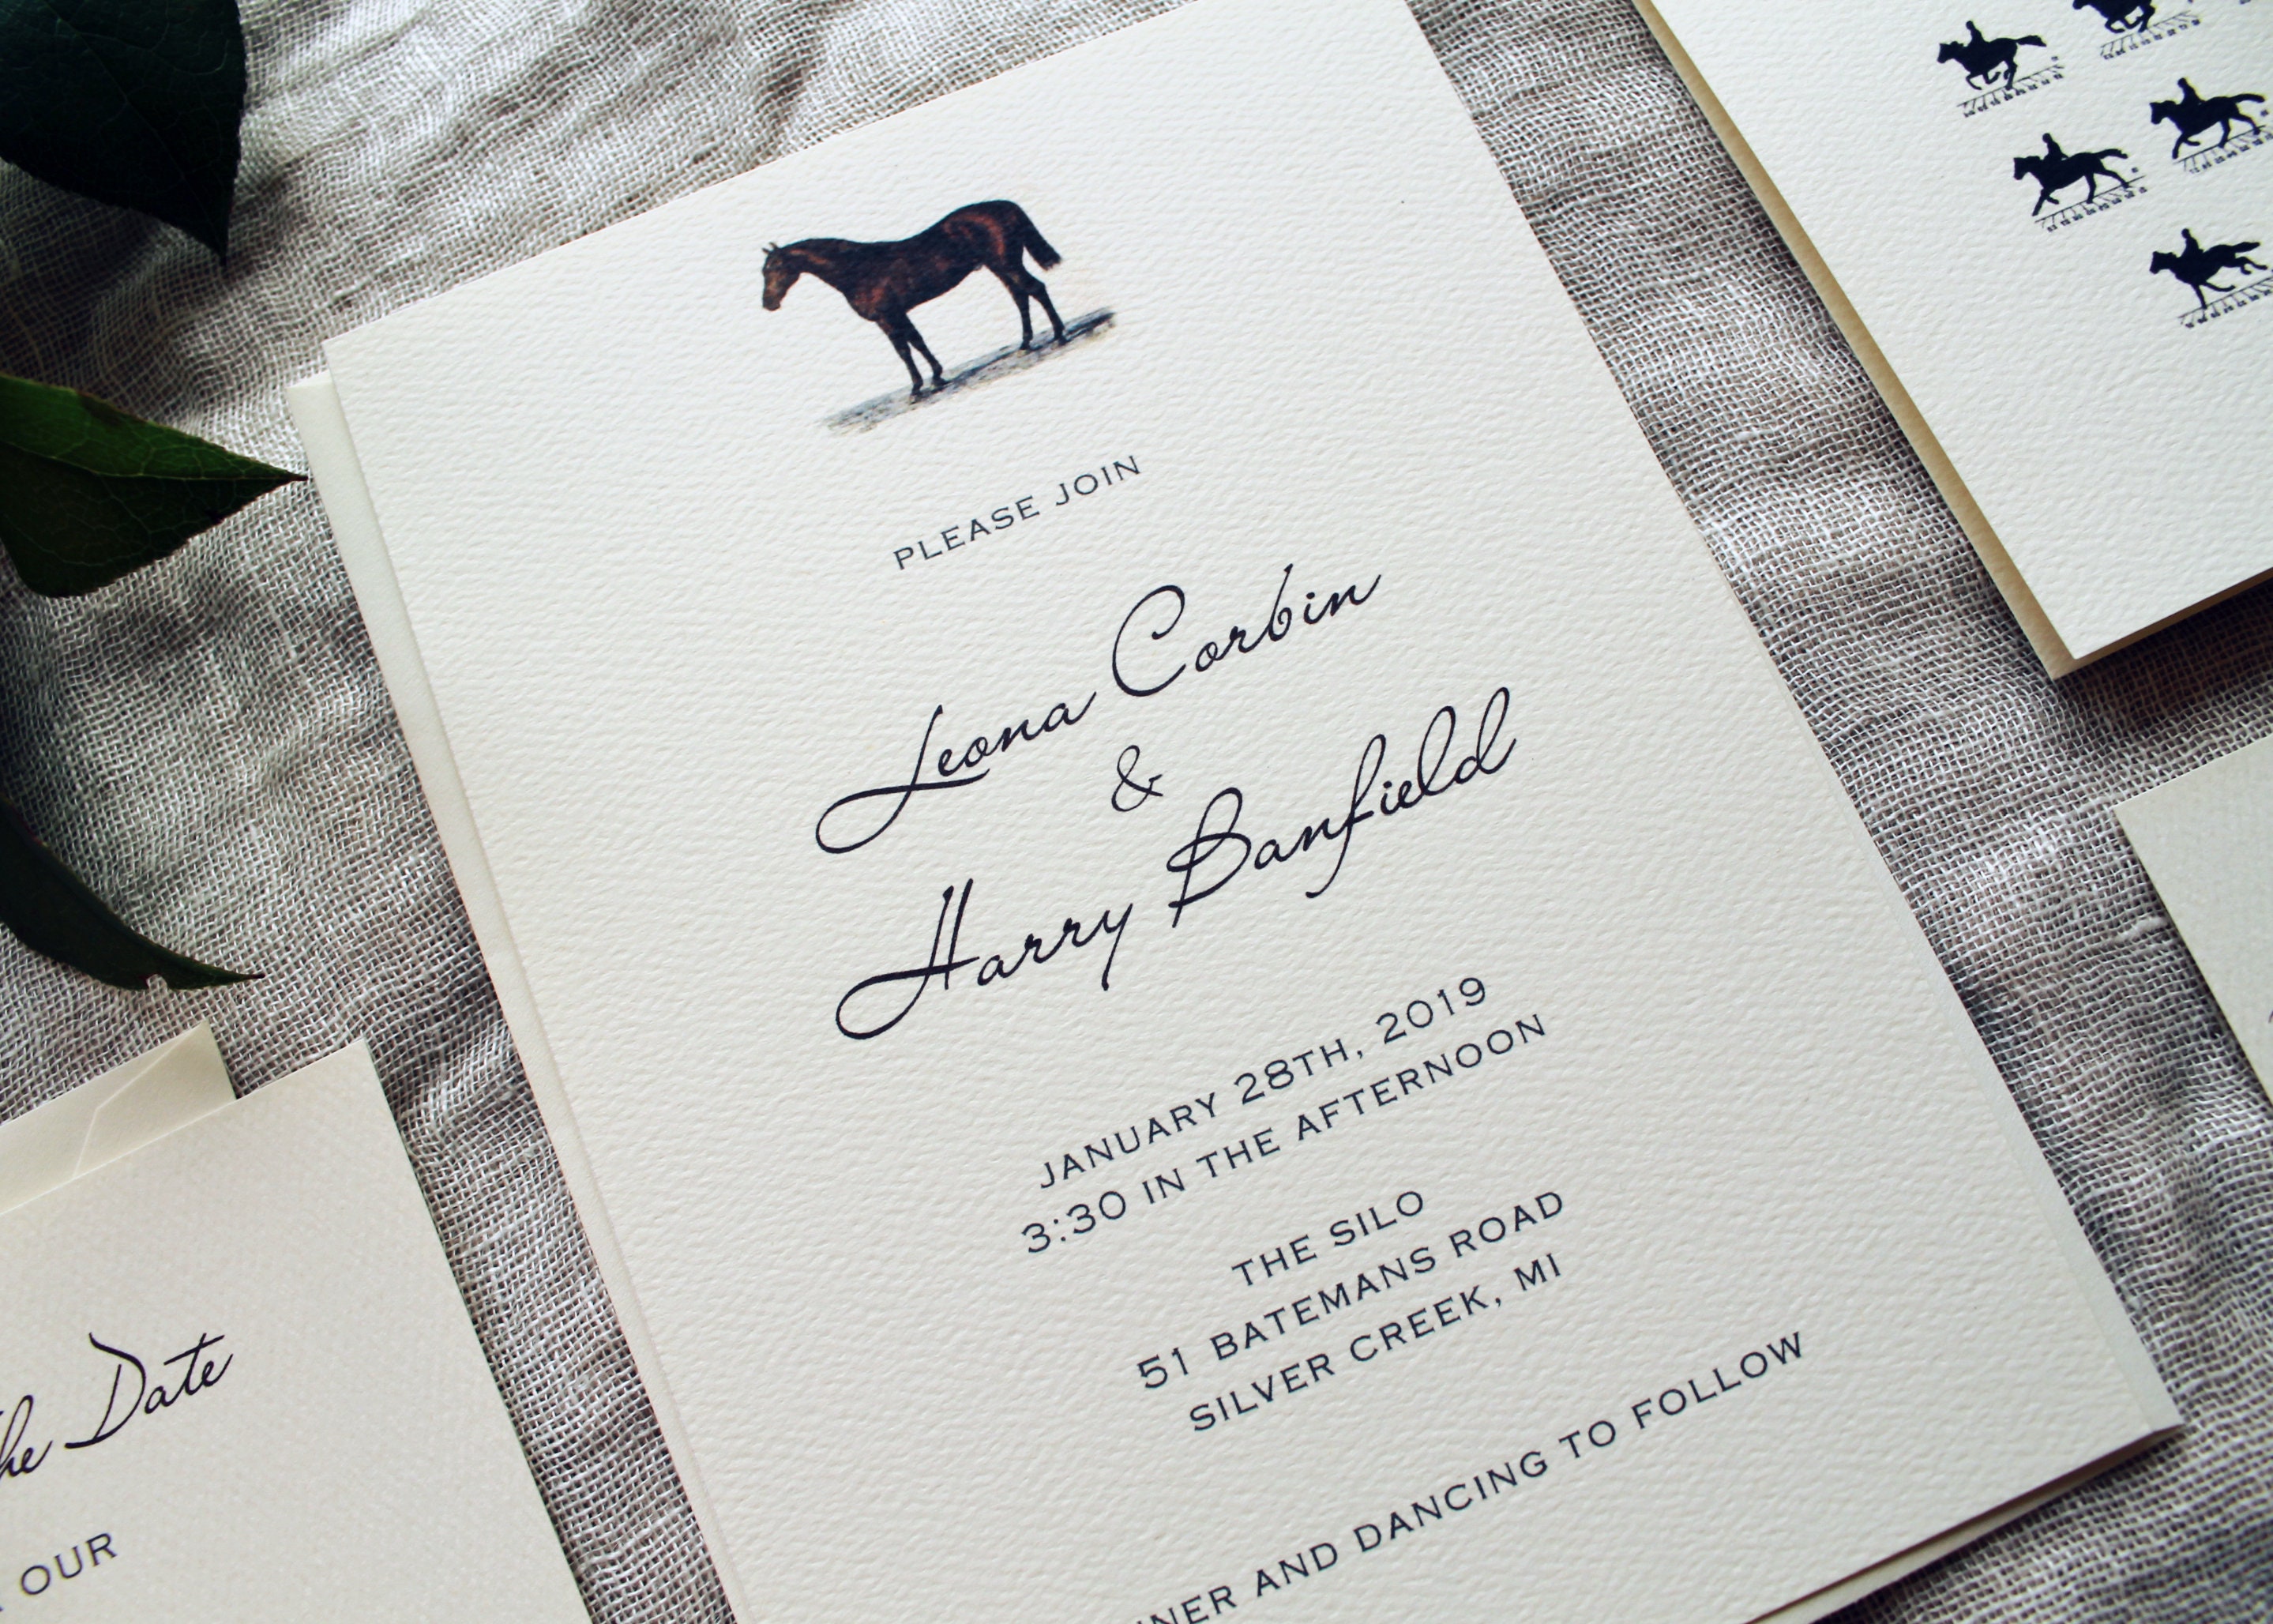 PLEASE JOIN
Leona Corbin
&
Harry Banfield
JANUARY 28TH, 2019
3:30 IN THE AFTERNOON
THE SILO
51 BATEMANS ROAD
SILVER CREEK, MI
AND DANCING TO FOLLOW
Date
OUR